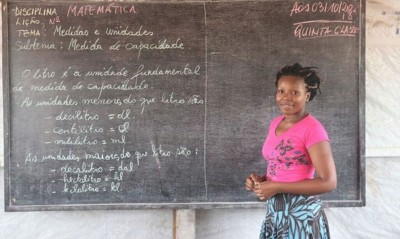 DISCIPLINA MATEMÁTICA
LIÇÃO Nº
TEMA: Medidas e unidades
Subtema: Medida de capacidade
AOS 03/10/2018
QUINTA CLASSE
O litro é a unidade fundamental
de medida de capacidade.
As unidades menores do que litro são
- decilitro = dl
- centilitro = cl
- mililitro = ml
As unidades maiores do que litro são:
- decalitro = dal
- hectolitro = hl
- kilolitro = kl